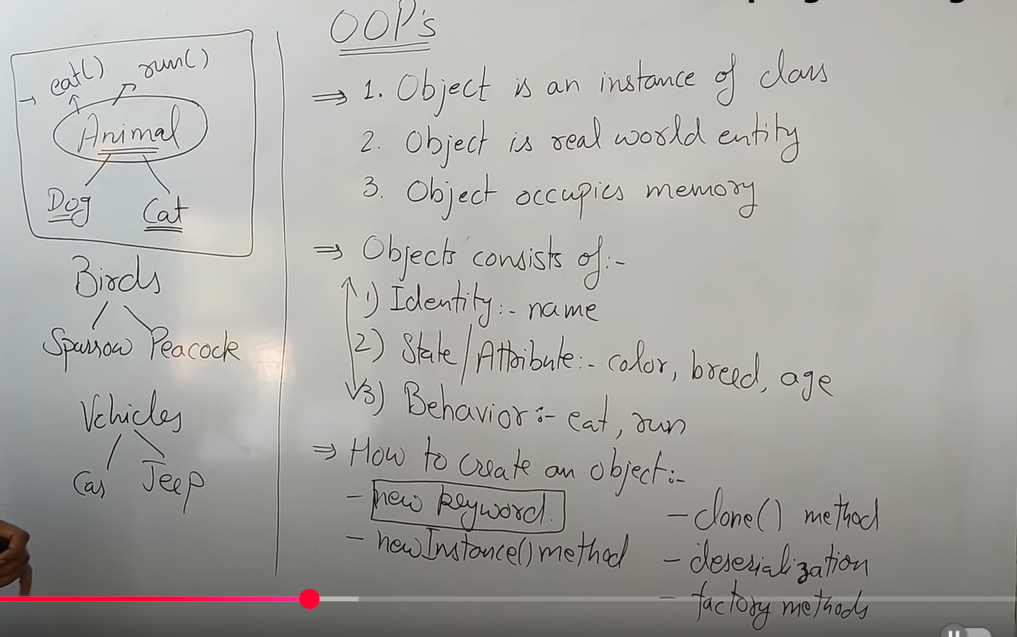 OOP's
eat() run()
Animal
Dog Cat
Birds
Sparrow Peacock
Vehicles
Car Jeep
⇒ 1. Object is an instance of class
2. Object is real world entity
3. Object occupies memory
⇒ Objects consists of:-
1) Identity:- name
2) State/Attribute:- color, breed, age
3) Behavior:- eat, run
⇒ How to create an object:-
- new keyword.
- newInstance() method
- clone() method
- deserialization
- factory methods